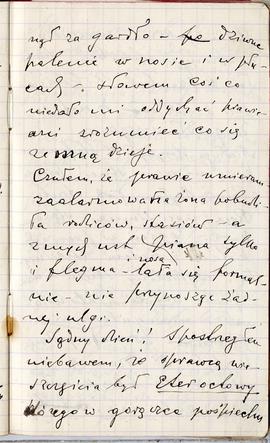 nął za gardło – dziwne
palenie w nosie i w płu-
cach – słowem coś co
niedało mi oddychać prawie
ani zrozumieć co się
ze mną dzieje.
Czułem, że prawie umieram
zaalarmowała żona pobudzi-
ła rodziców, Stasiów – a
z mych ust i nosa piana tylko
i flegma – lała się formal-
nie – nie przynosząc żad-
nej ulgi.
Sądny dzień! Spostrzegłem
niebawem, że sprawcą nie-
szczęścia był
którego w gorączce pośpiechu